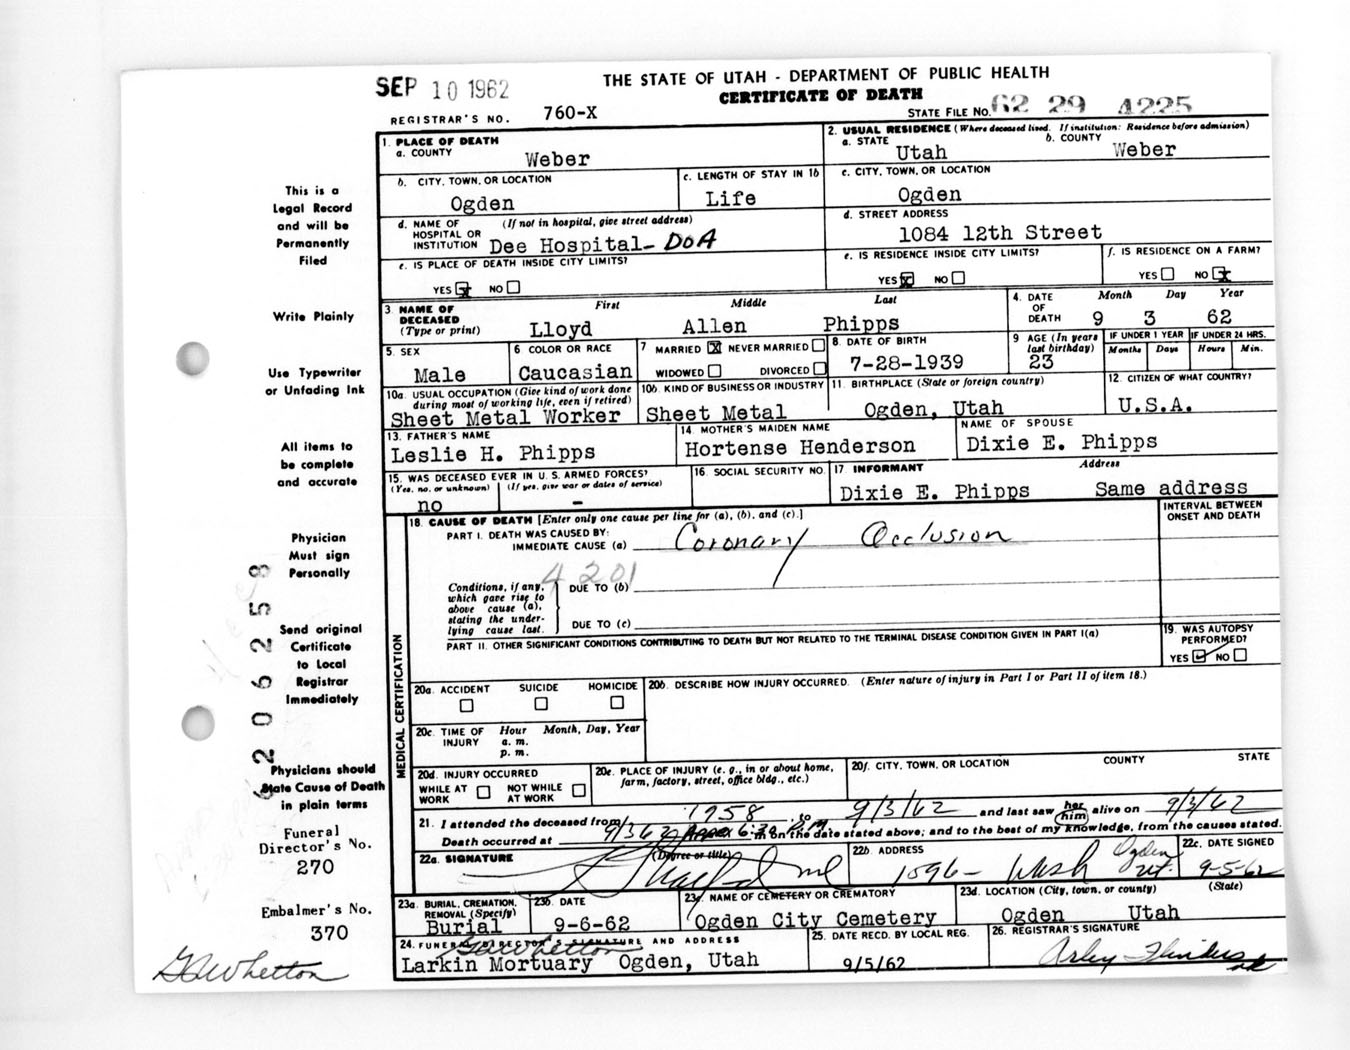 SEP 10 1962
THE STATE OF UTAH - DEPARTMENT OF PUBLIC HEALTH
CERTIFICATE OF DEATH
REGISTRAR'S NO. 760-X
STATE FILE NO. 62 29 4225
This is a
Legal Record
and will be
Permanently
Filed
Write Plainly
Use Typewriter
or Unfading Ink
All items to
be complete
and accurate
Physician
Must sign
Personally
Send original
Certificate
to Local
Registrar
Immediately
Physicians should
state Cause of Death
in plain terms
Funeral
Director's No.
270
Embalmer's No.
370
GAWhetton
2 0 6 2 5 8
1. PLACE OF DEATH
a. COUNTY Weber
2. USUAL RESIDENCE (Where deceased lived. If institution: Residence before admission)
a. STATE Utah b. COUNTY Weber
b. CITY, TOWN, OR LOCATION Ogden
c. LENGTH OF STAY IN 1b Life
c. CITY, TOWN, OR LOCATION Ogden
d. NAME OF HOSPITAL OR INSTITUTION (If not in hospital, give street address) Dee Hospital- DOA
d. STREET ADDRESS 1084 12th Street
e. IS PLACE OF DEATH INSIDE CITY LIMITS? YES X NO
e. IS RESIDENCE INSIDE CITY LIMITS? YES X NO
f. IS RESIDENCE ON A FARM? YES NO X
3. NAME OF DECEASED (Type or print) First Middle Last
Lloyd Allen Phipps
4. DATE OF DEATH Month Day Year
9 3 62
5. SEX Male
6 COLOR OR RACE Caucasian
7 MARRIED X NEVER MARRIED WIDOWED DIVORCED
8. DATE OF BIRTH 7-28-1939
9 AGE (In years last birthday) 23
IF UNDER 1 YEAR Months Days
IF UNDER 24 HRS. Hours Min.
10a. USUAL OCCUPATION (Give kind of work done during most of working life, even if retired) Sheet Metal Worker
10b. KIND OF BUSINESS OR INDUSTRY Sheet Metal
11. BIRTHPLACE (State or foreign country) Ogden, Utah
12. CITIZEN OF WHAT COUNTRY? U.S.A.
13. FATHER'S NAME Leslie H. Phipps
14. MOTHER'S MAIDEN NAME Hortense Henderson
NAME OF SPOUSE Dixie E. Phipps
15. WAS DECEASED EVER IN U.S. ARMED FORCES? (Yes, no, or unknown) (If yes, give war or dates of service)
no -
16. SOCIAL SECURITY NO.
17. INFORMANT Address
Dixie E. Phipps Same address
MEDICAL CERTIFICATION
18. CAUSE OF DEATH [Enter only one cause per line for (a), (b), and (c).]
INTERVAL BETWEEN ONSET AND DEATH
PART I. DEATH WAS CAUSED BY:
IMMEDIATE CAUSE (a) Coronary Occlusion
4201
Conditions, if any, which gave rise to above cause (a), stating the underlying cause last.
DUE TO (b)
DUE TO (c)
PART II. OTHER SIGNIFICANT CONDITIONS CONTRIBUTING TO DEATH BUT NOT RELATED TO THE TERMINAL DISEASE CONDITION GIVEN IN PART I(a)
19. WAS AUTOPSY PERFORMED? YES NO
20a. ACCIDENT SUICIDE HOMICIDE
20b. DESCRIBE HOW INJURY OCCURRED. (Enter nature of injury in Part I or Part II of item 18.)
20c. TIME OF INJURY Hour Month, Day, Year
a. m.
p. m.
20d. INJURY OCCURRED
WHILE AT WORK NOT WHILE AT WORK
20e. PLACE OF INJURY (e. g., in or about home, farm, factory, street, office bldg., etc.)
20f. CITY, TOWN, OR LOCATION COUNTY STATE
21. I attended the deceased from 1958 to 9/3/62 and last saw her him alive on 9/3/62
Death occurred at 9/3/62 Approx 6:30 Pm m on the date stated above; and to the best of my knowledge, from the causes stated.
22a. SIGNATURE (Degree or title)
22b. ADDRESS 1596 - Wash Ogden Ut.
22c. DATE SIGNED 9-5-62
23a. BURIAL, CREMATION, REMOVAL (Specify) Burial
23b. DATE 9-6-62
23c. NAME OF CEMETERY OR CREMATORY Ogden City Cemetery
23d. LOCATION (City, town, or county) (State)
Ogden Utah
24. FUNERAL DIRECTOR'S SIGNATURE AND ADDRESS
GAWhetton
Larkin Mortuary Ogden, Utah
25. DATE RECD. BY LOCAL REG. 9/5/62
26. REGISTRAR'S SIGNATURE
Arley Flinders